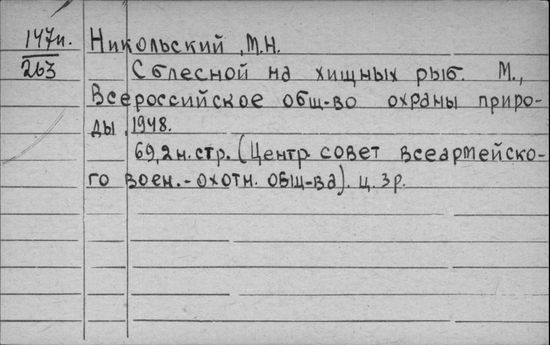 147н. Никольский, М.Н.
263 С блесной на хищных рыб. М.,
Всероссийское общ-во охраны приро-
ды, 1948.
69,2н.стр. (Центр совет всеармейско-
го воен.-охотн. общ-ва). ц. 3р.